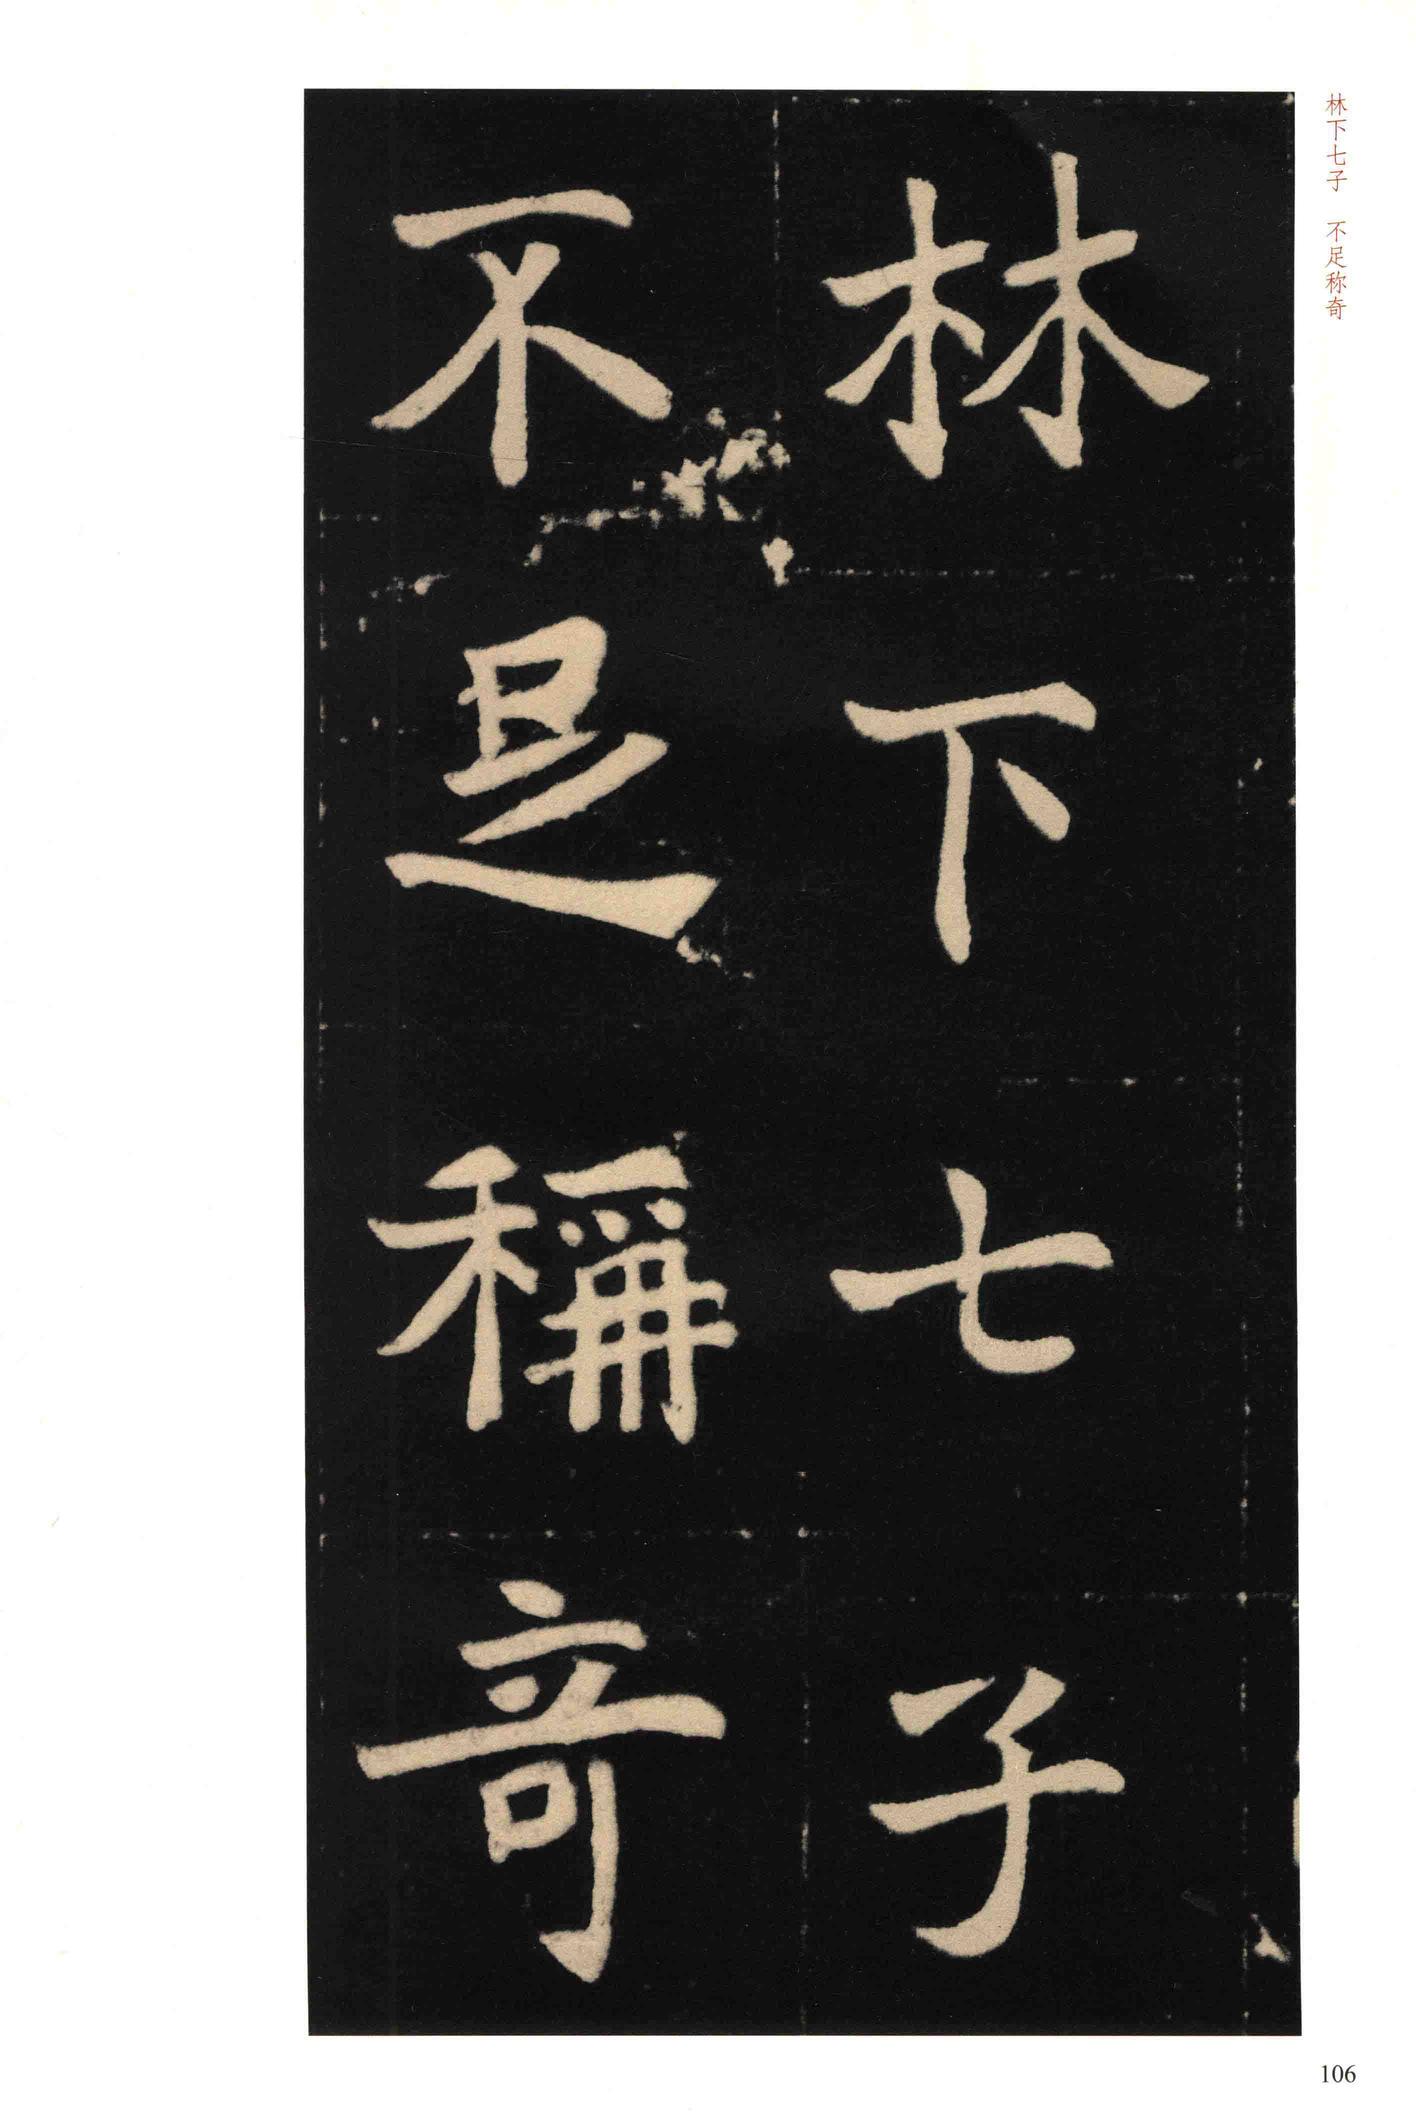 林下七子 不足称奇
林下七子
不足稱奇
106